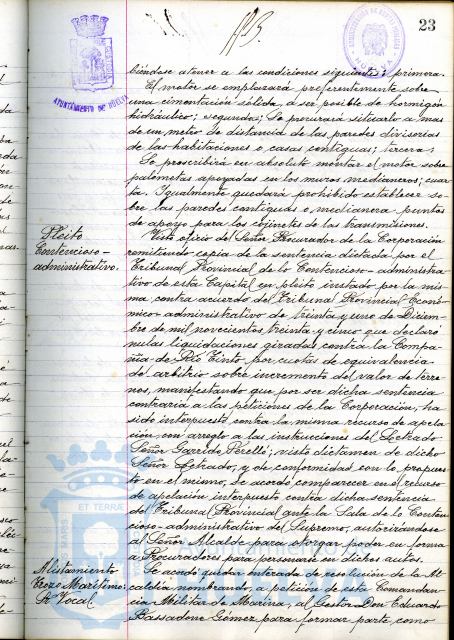 23
AYUNTAMIENTO DE HUELVA
biéndose atener a las condiciones siguientes: primera.
El motor se emplazará preferentemente sobre
una cimentación sólida, a ser posible de hormigón
hidráulico; segunda; Se procurará situarlo a mas
de un metro de distancia de las paredes divisorias
de las habitaciones o casas contiguas; tercera;
Se proscribirá en absoluto montar el motor sobre
palometas apoyadas en los muros medianeros; cuar-
ta. Igualmente quedará prohibido establecer so-
bre las paredes contiguas o medianera puntos
de apoyo para los cojinetes de las transmisiones.
Pleito
Contencioso-
administrativo.
Visto oficio del Señor Procurador de la Corporación
remitiendo copia de la sentencia dictada por el
Tribunal Provincial de lo Contencioso-administra-
tivo de esta Capital en pleito instado por la mis-
ma contra acuerdo del Tribunal Provincial Econó-
mico-administrativo de treinta y uno de Diciem-
bre de mil novecientos treinta y cinco que declaró
nulas liquidaciones giradas contra la Compa-
ñia de Rio Tinto por cuotas de equivalencia
de arbitrio sobre incremento del valor de terre-
nos, manifestando que por ser dicha sentencia
contraria a las peticiones de la Corporación, ha
sido interpuesto contra la misma recurso de apela-
ción con arreglo a las instrucciones del Letrado
Señor Garrido Perelló; visto dictamen de dicho
Señor Letrado, y de conformidad con lo propues-
to en el mismo, se acordó comparecer en el recurso
de apelación interpuesto contra dicha sentencia
del Tribunal Provincial ante la Sala de lo Conten-
cioso-administrativo del Supremo, autorizándose
al Señor Alcalde para otorgar poder en forma
a Procuradores para personarse en dichos autos.
Alistamiento
Trozo Marítimo:
Sr Vocal
Se acordó quedar enterada de resolución de la Al-
caldía nombrando, a petición de esta Comandan-
cia Militar de Marina, al Gestor Don Eduardo
Bassadone Gómez para formar parte, como
ET TERRA